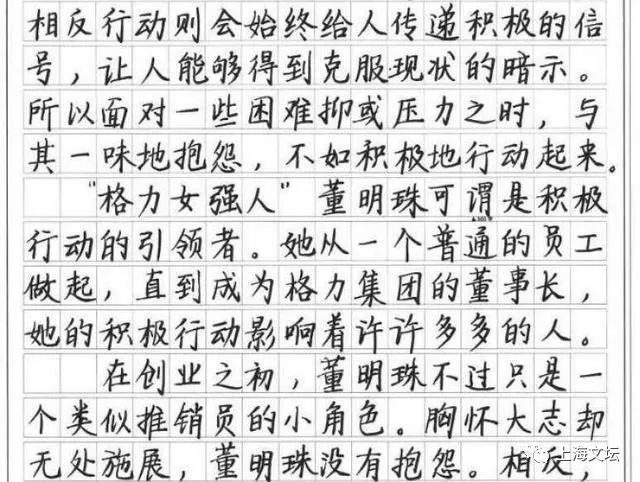 相反行动则会始终给人传递积极的信
号，让人能够得到克服现状的暗示。
所以面对一些困难抑或压力之时，与
其一味地抱怨，不如积极地行动起来。
“格力女强人”董明珠可谓是积极
行动的引领者。她从一个普通的员工
做起，直到成为格力集团的董事长，
她的积极行动影响着许许多多的人。
在创业之初，董明珠不过只是一
个类似推销员的小角色。胸怀大志却
无处施展，董明珠没有抱怨。相反，
▲300
上海文坛